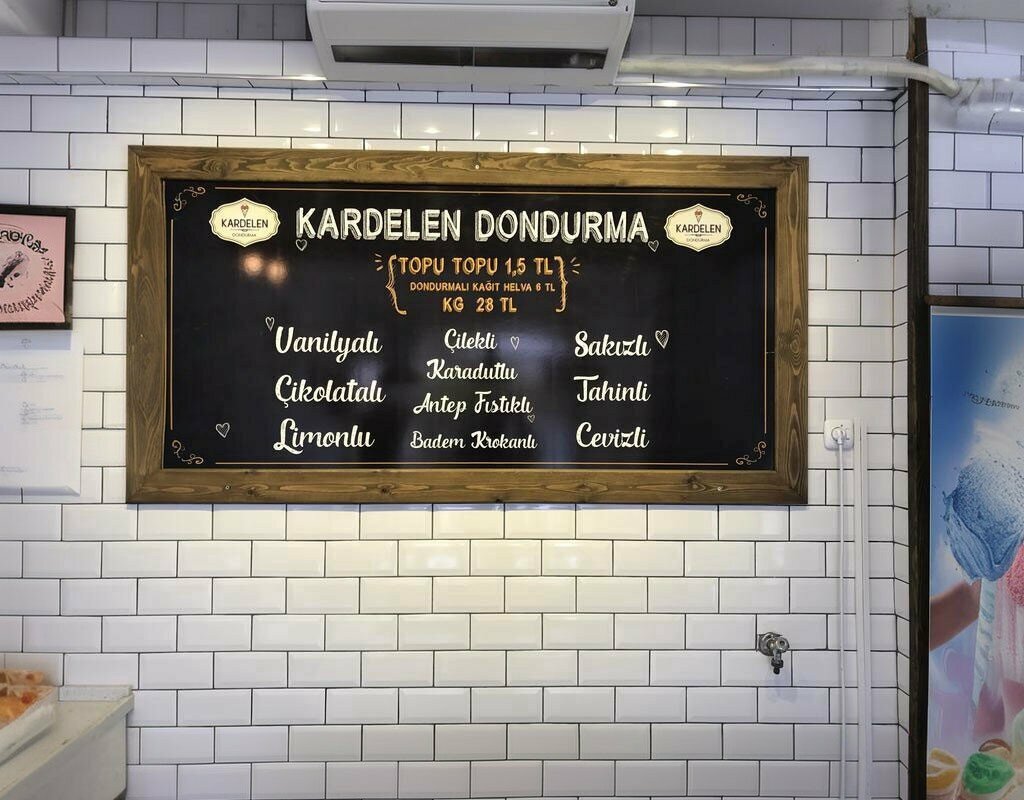 KARDELEN DONDURMA
KARDELEN
DONDURMA
KARDELEN
DONDURMA
TOPU TOPU 1,5 TL
DONDURMALI KAĞIT HELVA 6 TL
KG 28 TL
Vanilyalı
Çikolatalı
Limonlu
Çilekli
Karadutlu
Antep Fıstıklı
Badem Krokanlı
Sakızlı
Tahinli
Cevizli